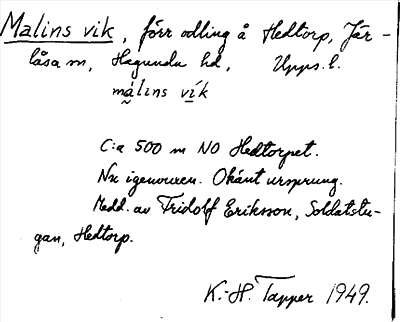 Malins vik, förr odling å Hedtorp, Jär-
låsa sn, Hagunda hd, Upps. l.
málins vík
C:a 500 m NO Hedtorpet.
Nu igenvuxen. Okänt ursprung.
Medd. av Fridolf Eriksson, Soldatstu-
gan, Hedtorp.
K.-H. Tapper 1949.